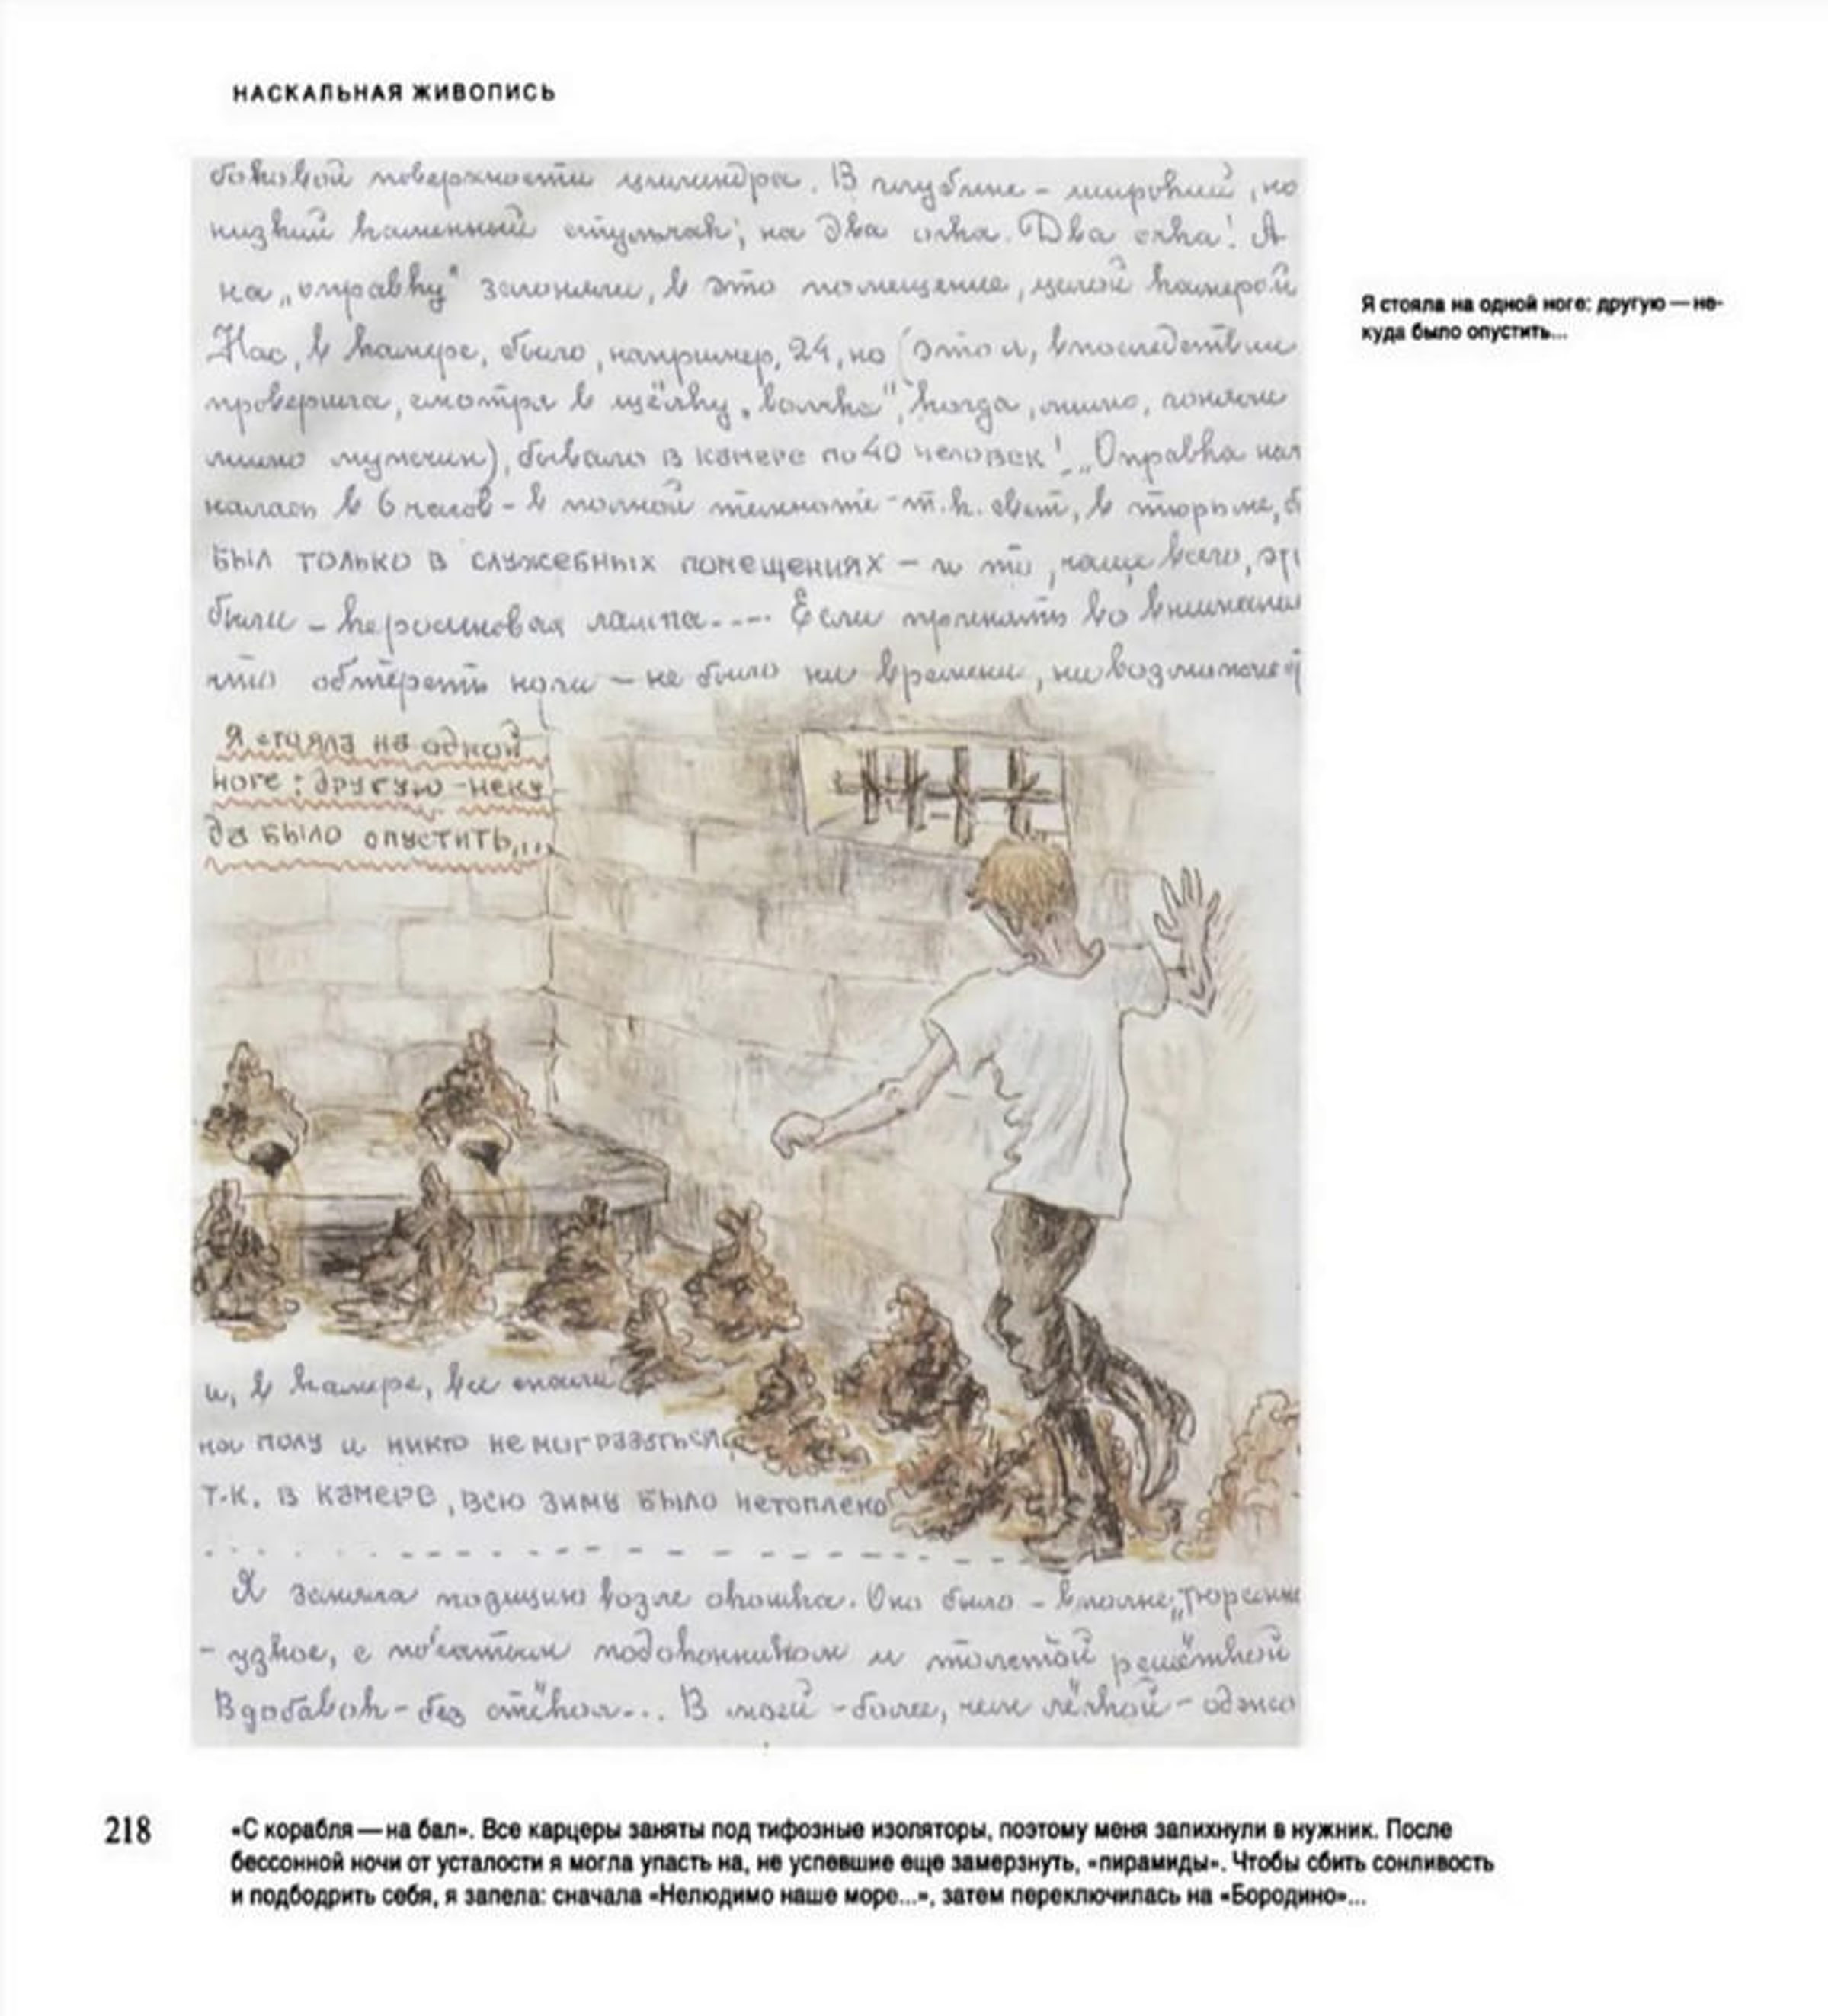 НАСКАЛЬНАЯ ЖИВОПИСЬ
боковой поверхности цилиндра. В глубине – широкий, но
низкий каменный стульчак, на два очка. Два очка! А
на „оправку" загоняли, в это помещение, целой камерой
Нас, в камере, было, например, 24, но (это я, впоследствии
проверила, смотря в щёлку „волчка", когда, мимо, гоняли
мимо мужчин), бывало в камере по 40 человек! „Оправка нач
калась в 6 часов – в полной темноте – т.к. свет, в тюрьме, б
был только в служебных помещениях – и то, чаще всего, эт
были – керосиновая лампа.... Если принять во внимание
что обтереть ноги – не было ни времени, ни возможност
Я стояла на одной
ноге: другую – неку
да было опустить...
и, в камере, все спали
на полу и никто не мог разуться,
т.к. в камере, всю зиму было нетоплено
Я заняла позицию возле окошка. Оно было – вполне „тюремно
– узкое, с покатым подоконником и толстой решёткой
Вдобавок – без стёкол... В моей – более, чем лёгкой – одежд
Я стояла на одной ноге: другую — не-
куда было опустить...
218
«С корабля — на бал». Все карцеры заняты под тифозные изоляторы, поэтому меня запихнули в нужник. После
бессонной ночи от усталости я могла упасть на, не успевшие еще замерзнуть, «пирамиды». Чтобы сбить сонливость
и подбодрить себя, я запела: сначала «Нелюдимо наше море...», затем переключилась на «Бородино»...